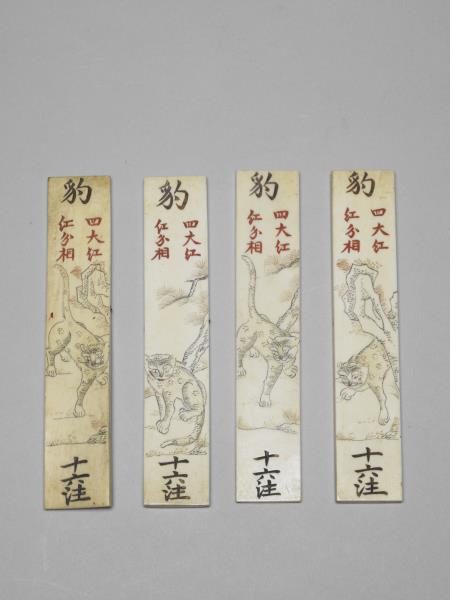 豹
四大红
红分相
十六注
豹
四大红
红分相
十六注
豹
四大红
红分相
十六注
豹
四大红
红分相
十六注